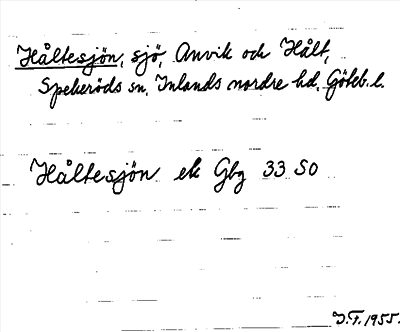 Håltesjön, sjö, Anvik och Hålt,
Spekeröds sn. Inlands nordre hd. Göteb. l.
Håltesjön ek Gbg 33 SO
J.F. 1955.